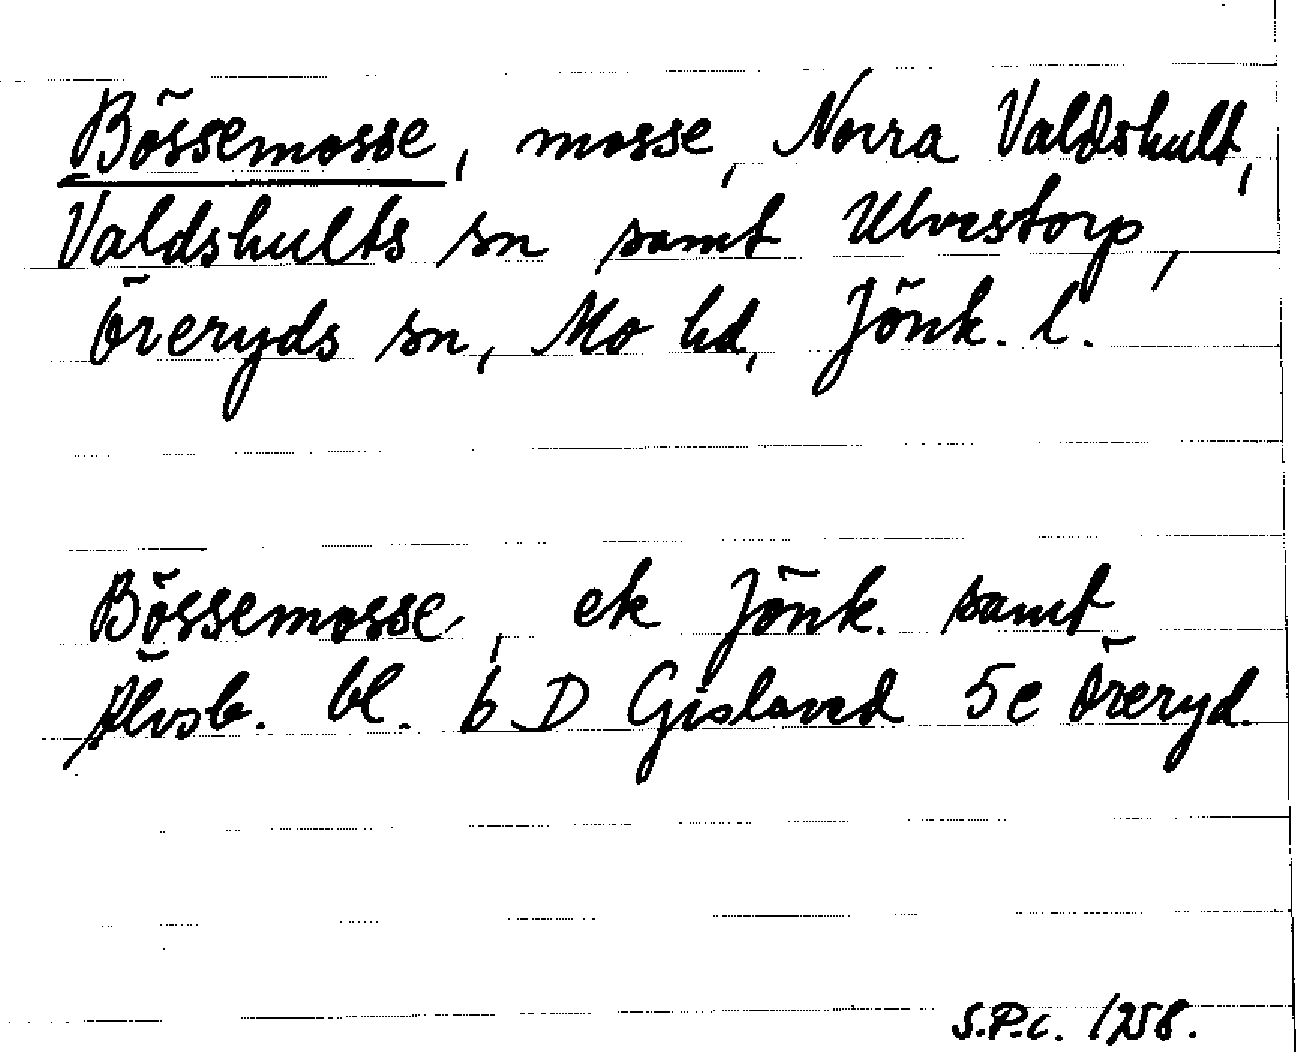 Bössemosse, mosse, Norra Valdshult,
Valdshults sn samt Ulvestorp,
Öreryds sn, Mo hd, Jönk. l.
Bössemosse, ek Jönk. samt
Älvsb. bl. 6 D Gislaved 5e Öreryd.
S.P.c. 1258.